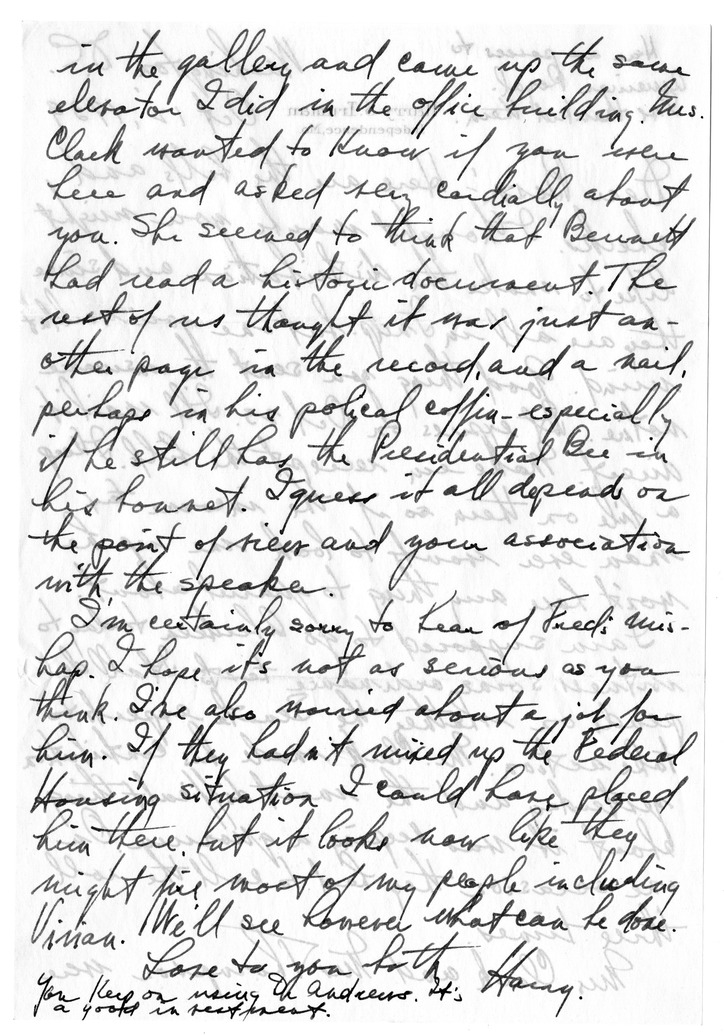 in the gallery and came up the same
elevator I did in the office building. Mrs.
Clark wanted to know if you were
here and asked very cordially about
you. She seemed to think that Bennett
had read a historic document. The
rest of us thought it was just an-
other page in the record, and a nail,
perhaps in his polical coffin - especially
if he still has the Presidential Bee in
his bonnet. I guess it all depends on
the point of view and your association
with the speaker.
I'm certainly sorry to hear of Fred's mis-
hap. I hope it's not as serious as you
think. I've also worried about a job for
him. If they hadn't mixed up the Federal
Housing situation I could have placed
him there, but it looks now like they
might fire most of my people including
Vivian. We'll see however what can be done.
Love to you both Harry.
You keep on using Dr Andrews. It's
a good investment.